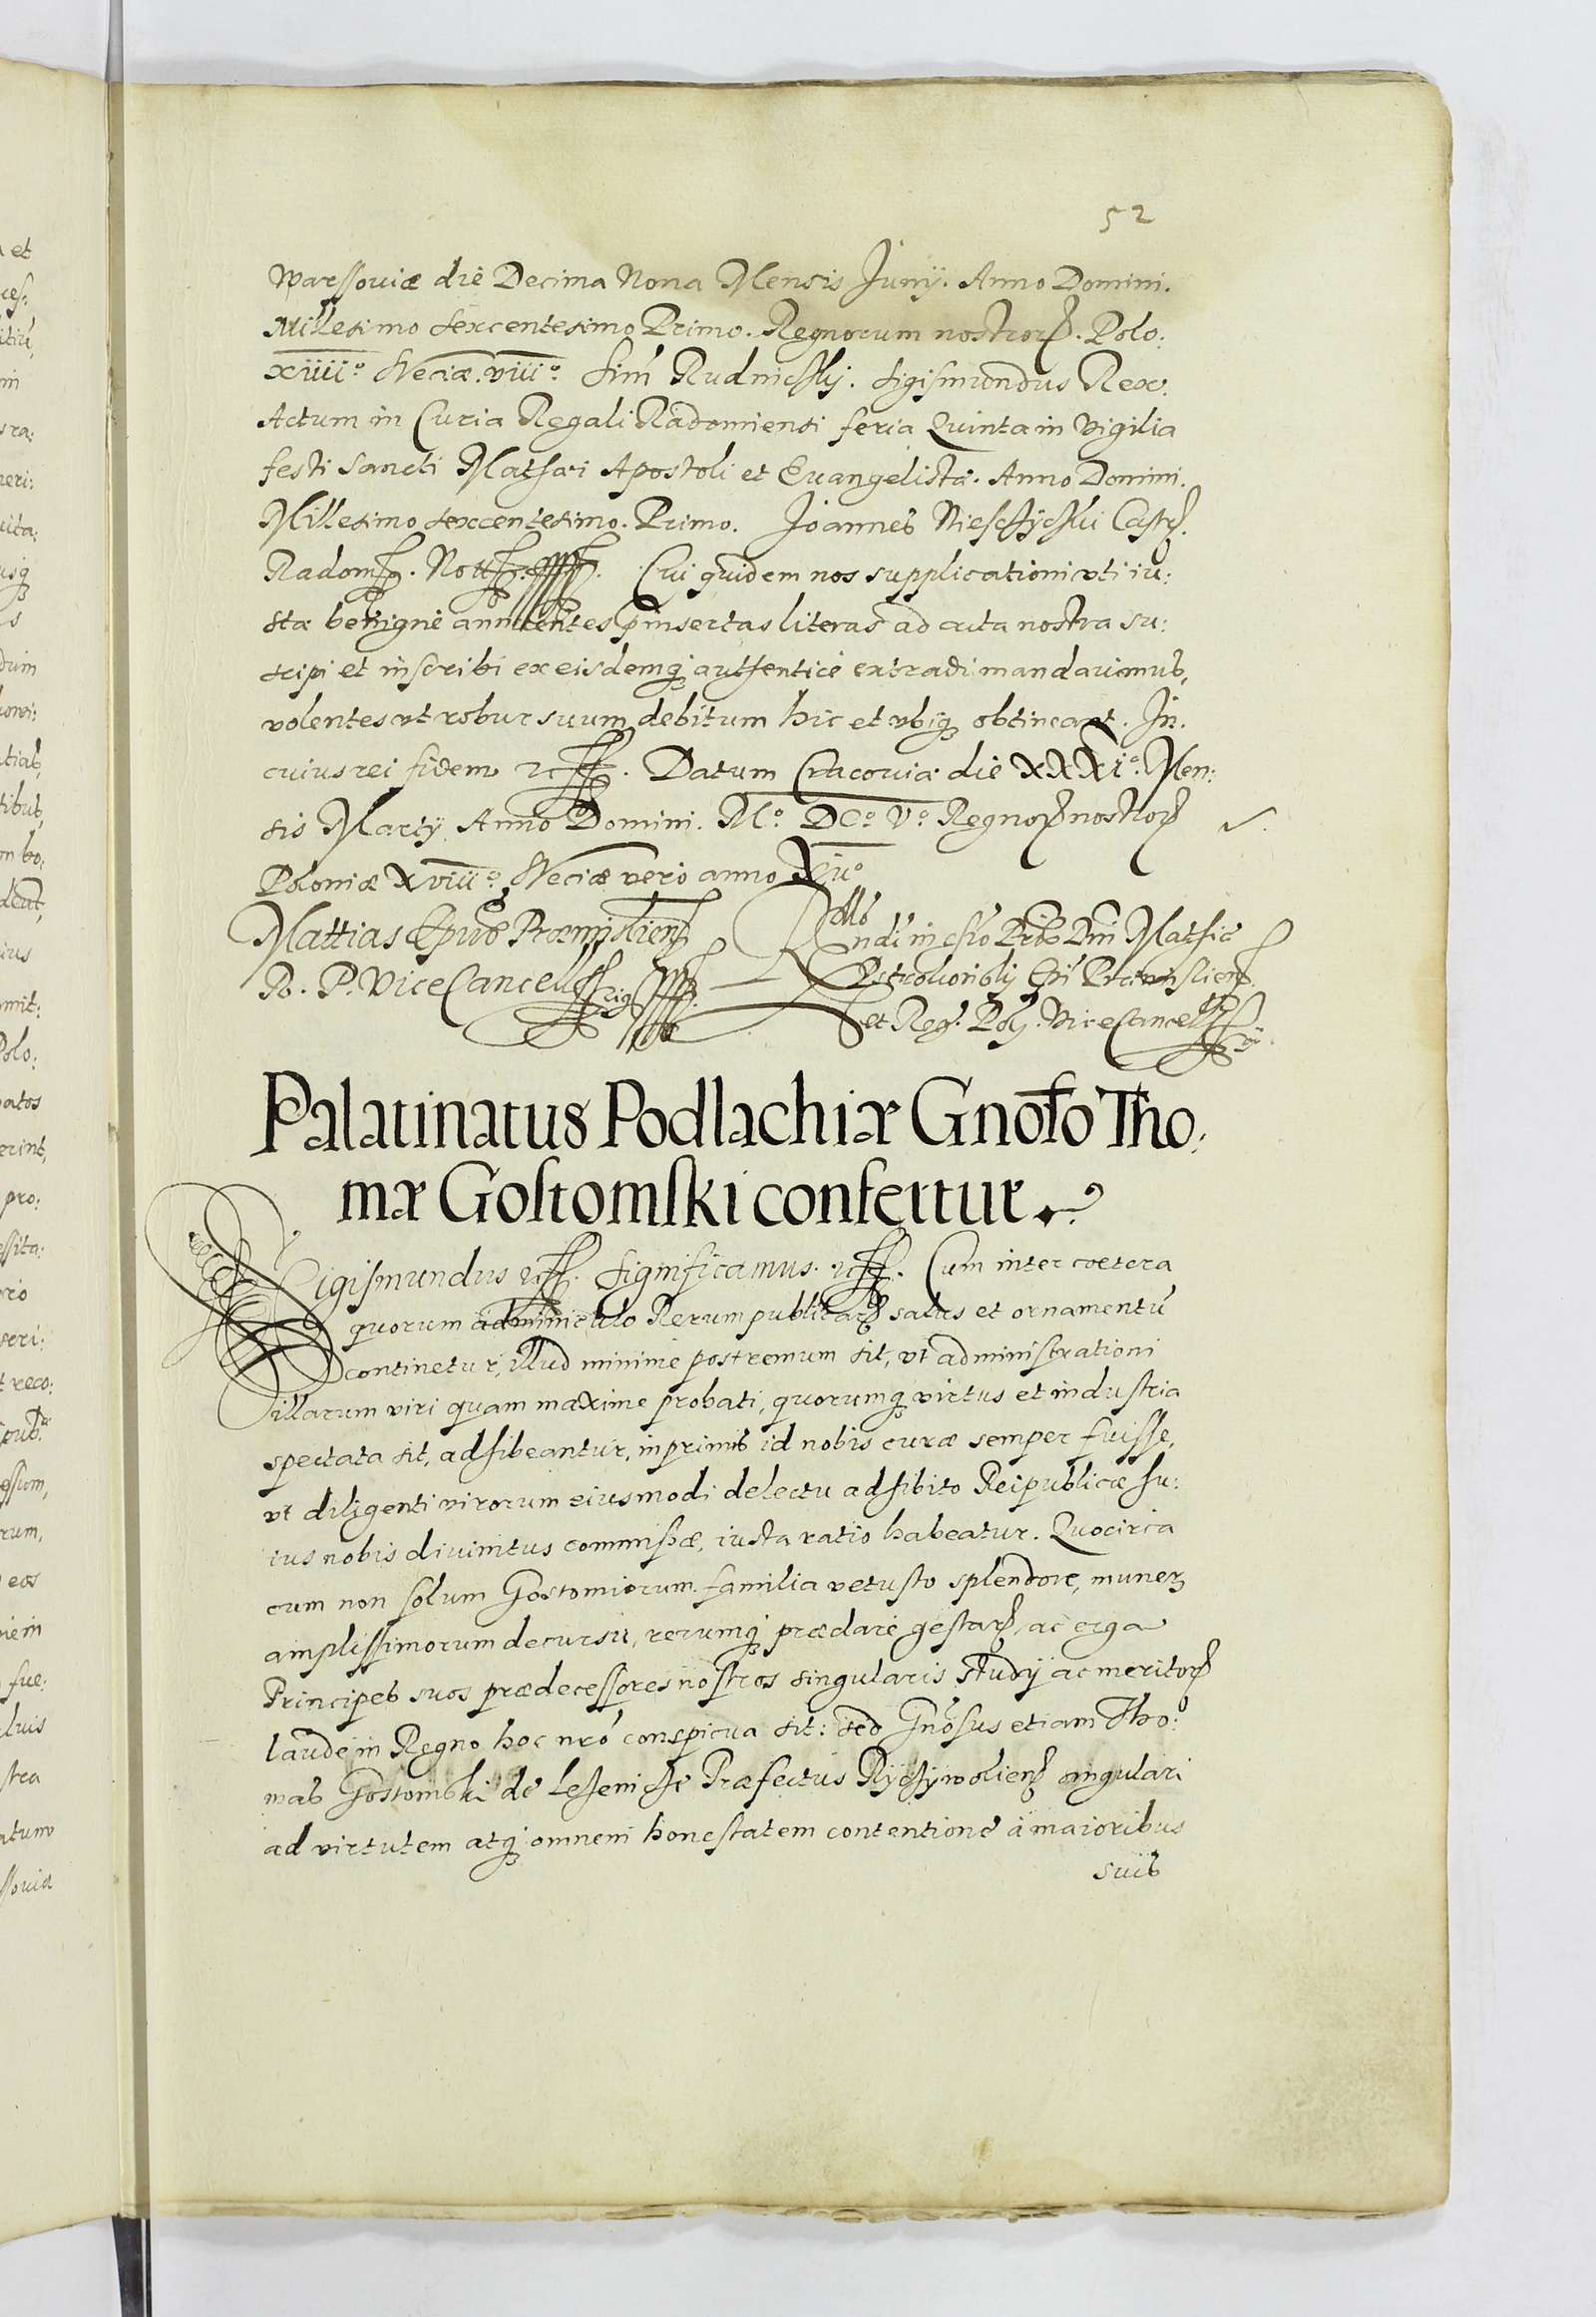 52
Warssouiæ die Decima Nona Mensis Junij. Anno Domini.
Millesimo Sexcentesimo Primo. Regnorum nostroꝝ. Polo:
xiiii°. Sveciæ. viii°. Sim Rudnicki. Sigismundus Rex.
Actum in Curia Regali Radomiensi feria Quinta in Vigilia
festi Sancti Mathæi Apostoli et Euangelistæ. Anno Domini.
Millesimo Sexcentesimo. Primo. Joannes
Radom. Nott. Cui quidem nos supplicationi vti iu:
stæ benignè annuentes pinsertas literas ad acta nostra su:
scipi et inscribi ex eisdemqꝫ authenticè extradi mandauimus,
volentes vt robur suum debitum hic et vbiqꝫ obtineant. In.
cuius rei fidem. Datum Cracouiæ die XXXI°. Men:
sis Martij Anno Domini. M°. DC°. V°. Regnoꝝ nostroꝝ
Poloniæ XViii°. Sveciæ vero anno
Mattias Epus Præmisliens
R. P. ViceCancell
Mathiæ
et Reg. Vicecancell
Palatinatus Podlachiæ Gnoso Tho:
mæ Gostomski confertur.
Sigismundus. Significamus. Cum inter cœtera
quorum adminiculo Rerumpublicaꝝ salus et ornamentū
continetur, illud minime postremum sit, vt administrationi
illarum viri quam maxime probati, quorumqꝫ virtus et industria
spectata sit, adhibeantur, inprimis id nobis curæ semper fuisse,
vt diligenti virorum eiusmodi delectu adhibito Reipublicæ hu:
ius nobis diuinitus commissæ, iusta ratio habeatur. Quocirca
cum non solum Gostomiorum familia vetusto splendore, muneꝝ
amplissimorum decursu, rerumqꝫ præclarè gestaꝝ, ac erga
Principes suos prædecessores nostros singularis studij ac meritoꝝ
laude in Regno hoc nrō conspicua sit: sed Gnōsus etiam Tho:
mas Gostomski de Præfectus singulari
ad virtutem atqꝫ omnem honestatem contentione à maioribus
suis